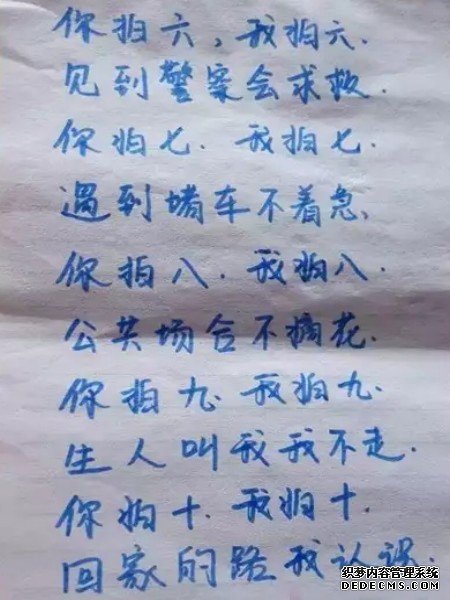 你拍六，我拍六．
见到警察会求救．
你拍七．我拍七．
遇到堵车不着急．
你拍八．我拍八．
公共场合不摘花．
你拍九．我拍九．
生人叫我我不走．
你拍十．我拍十．
回家的路我认识．
织梦内容管理系统
DEDECMS.COM